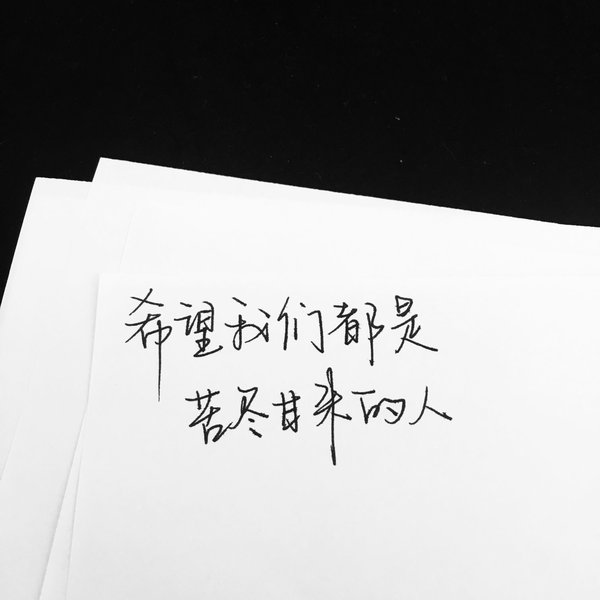 希望我们都是
苦尽甘来的人